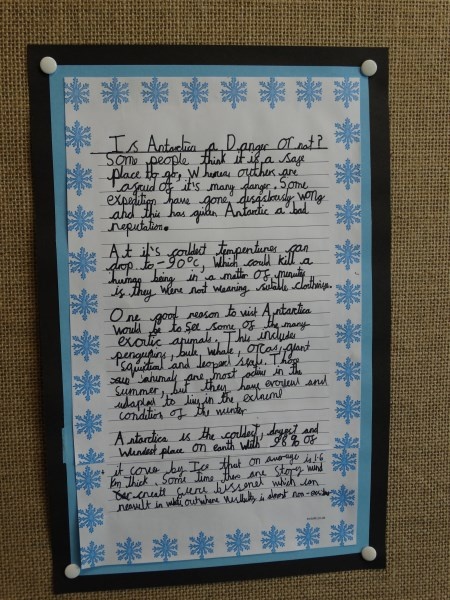 Is Antarctica a Danger or not?
Some people think it is a safe
place to go, Whereas outhers are
afraid of it's many danger. Some
expedition have gone disastrously wrong
and this has given Antarctic a bad
reputation.
At it's couldest temperatures can
drop to -90°C, which could kill a
human being in a matter of minuts
is they were not wearing suitable clothing.
One good reason to visit Antarctica
would be to see some of the many
exotic animals. This include
penguins, bule whale, orcas, giant
squid and leopard seals. Those
animals are most active in the
summer, but they have and
to live in the
condition of the winter
Antarctica is the couldest, dryest and
windest place on earth with 98% of
it cover by Ice that on average is 1.6
km thick. Some time there are story wind
create which can
result in where is almost